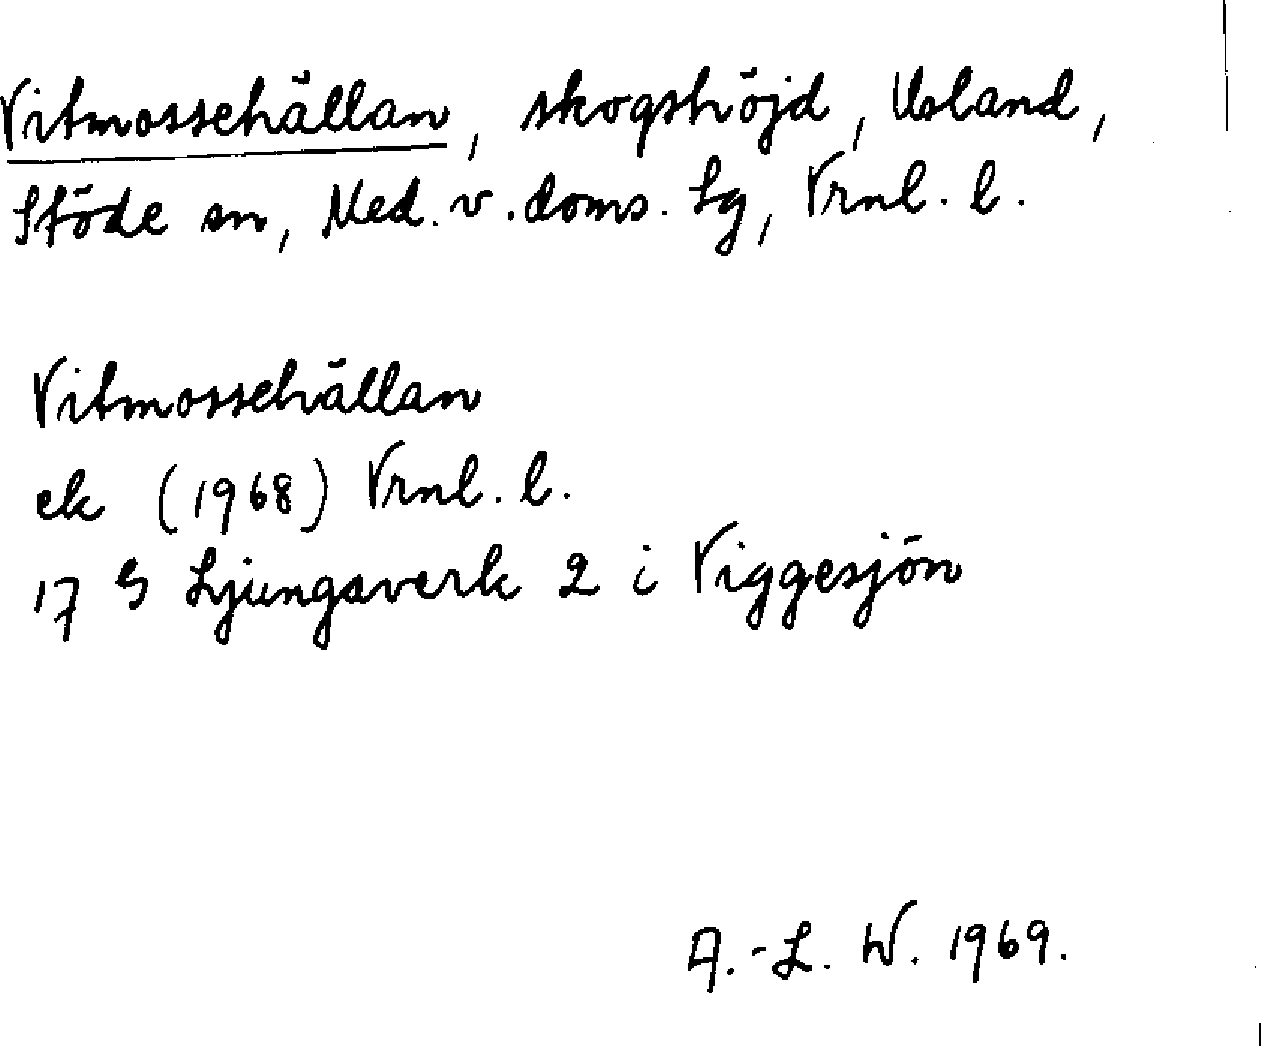 Vitmossehällan, skogshöjd, Usland,
Stöde sn, Med. v. doms. Lg, Vrnl. l.
Vitmossehällan
ek (1968) Vrnl. l.
17 G Ljungaverk 2 i Viggesjön
A.-L. W. 1969.